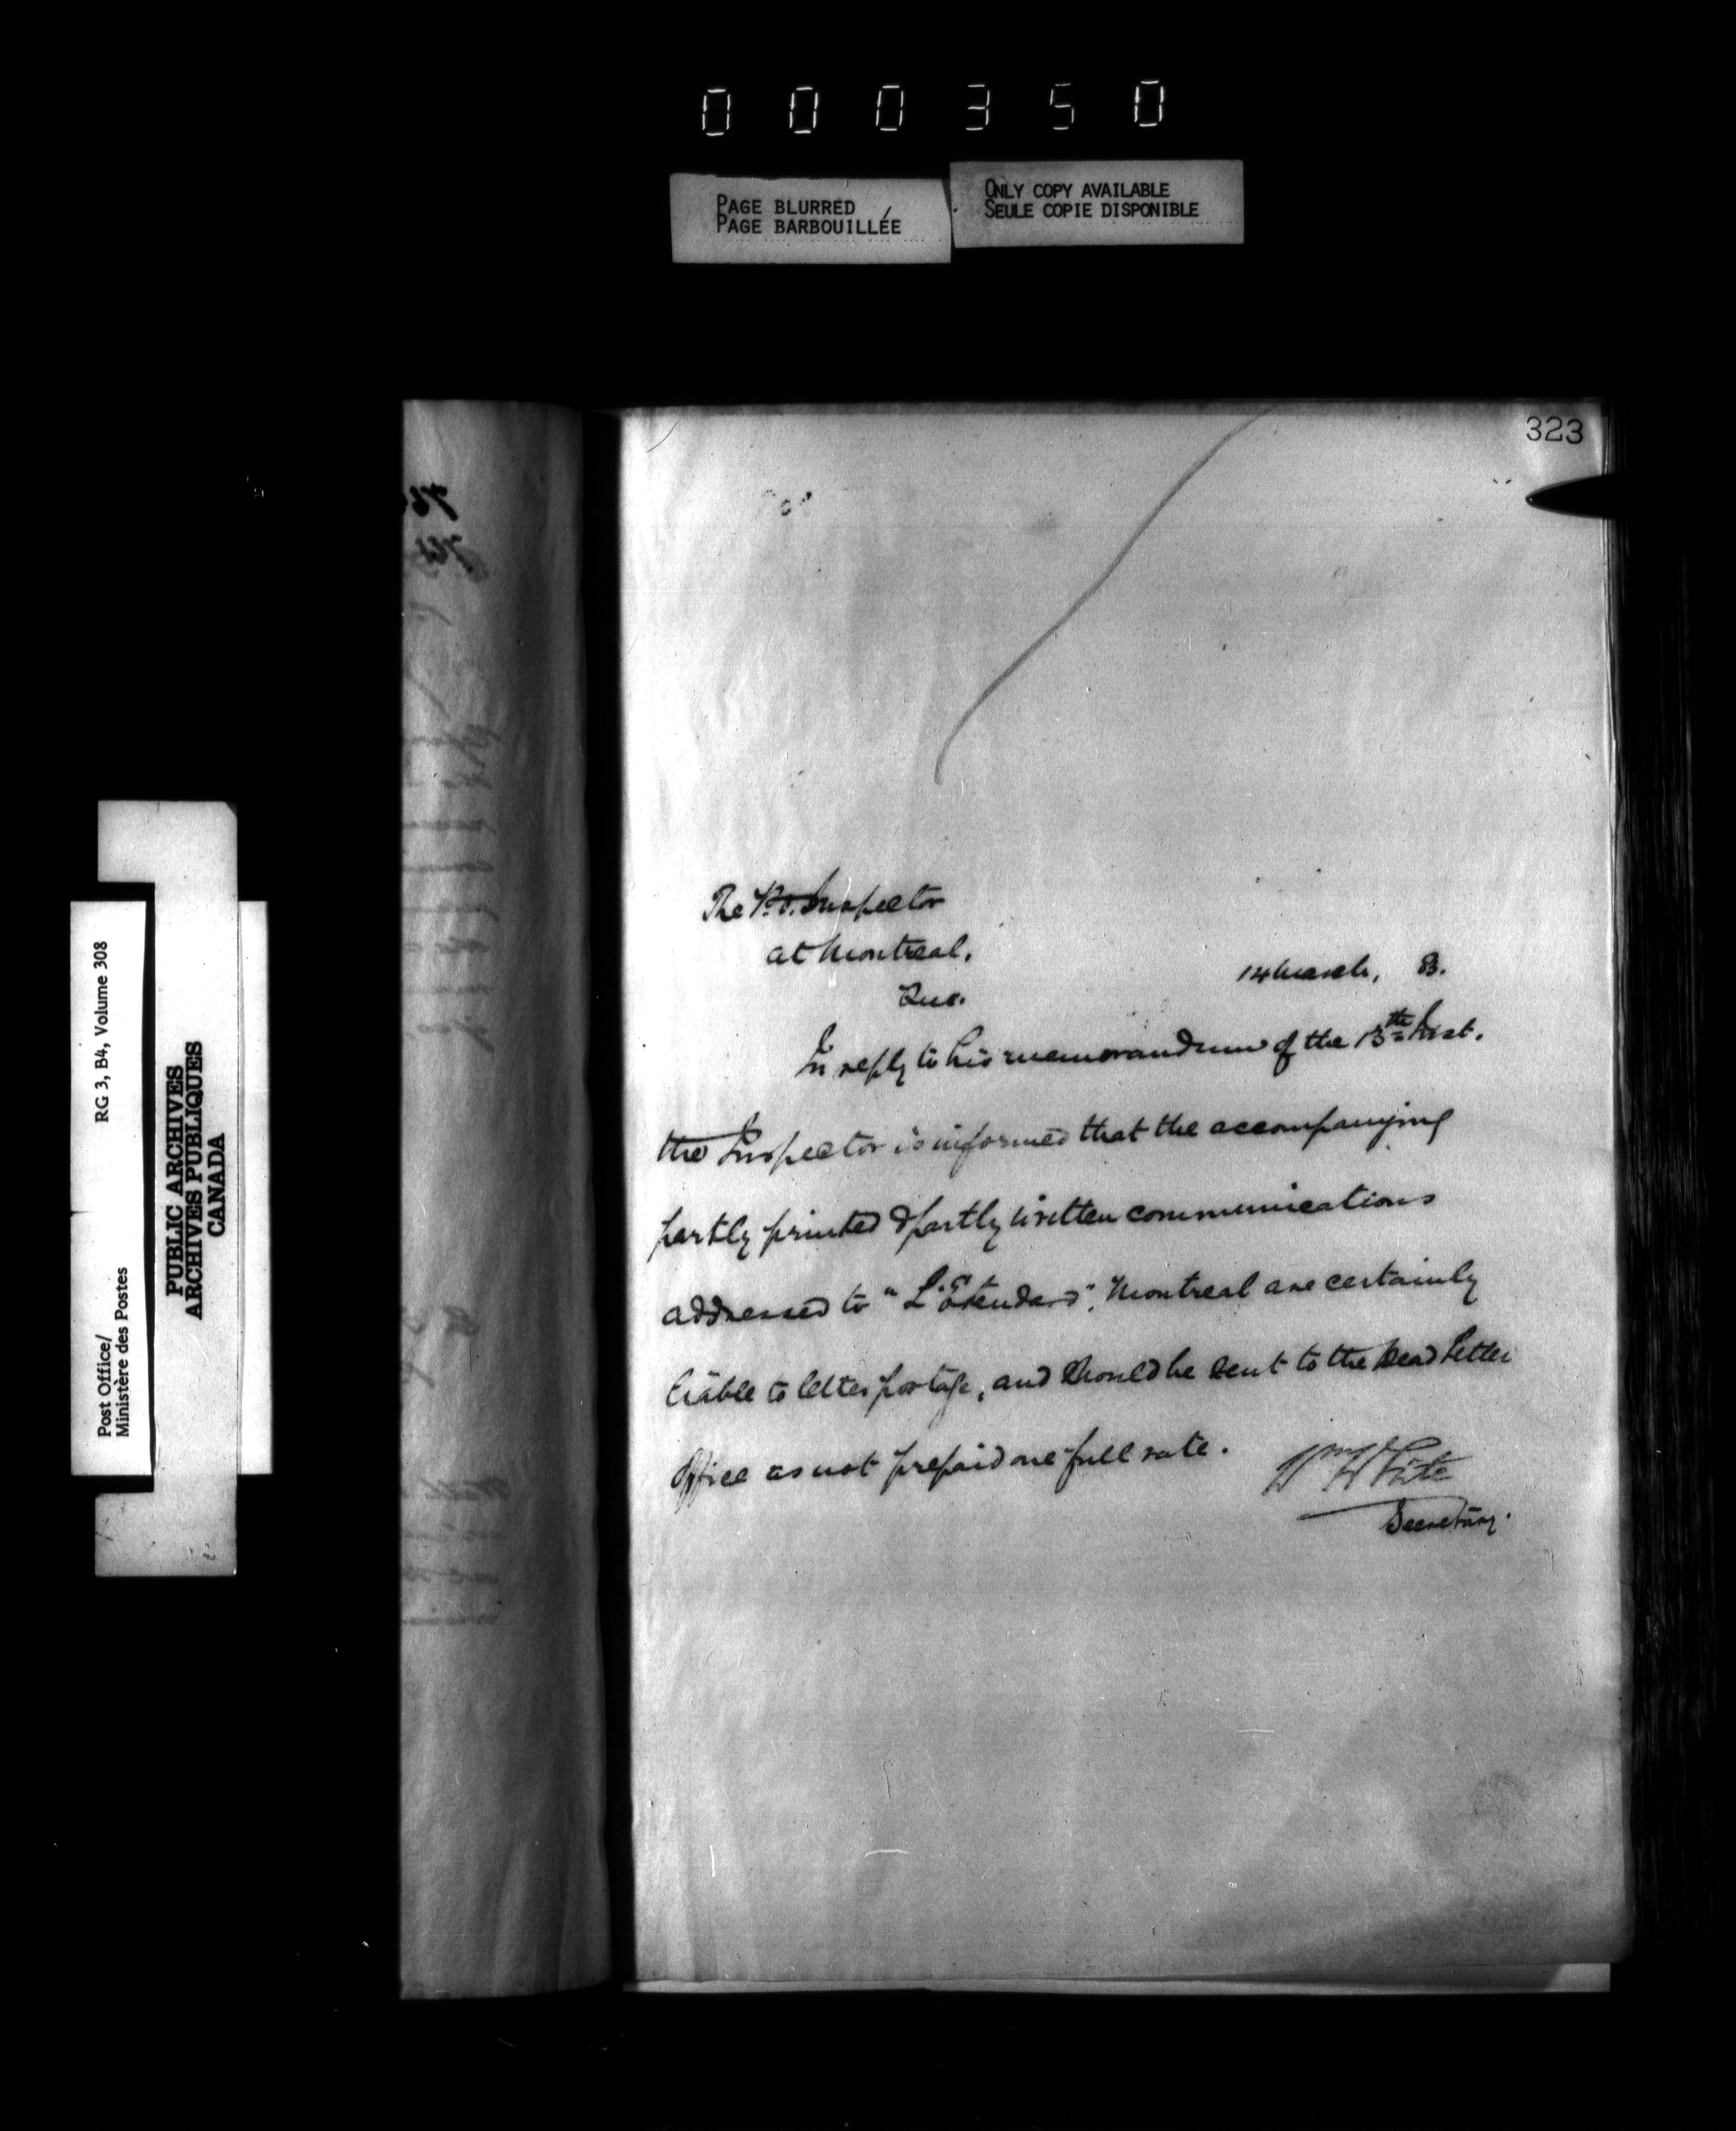 000350
PAGE BLURRED
PAGE BARBOUILLÉE
ONLY COPY AVAILABLE
SEULE COPIE DISPONIBLE
323
The P.O. Inspector
at Montreal,
Que.
14 March, 83.
In reply to his memorandum of the 13th Inst.
the Inspector is informed that the accompanying
partly printed & partly written communications
addressed to "L'Etendard", Montreal are certainly
liable to letter postage, and should be sent to the Dead Letter
Office as not prepaid one full rate.
Wm White
Secretary.
RG 3, B4, Volume 308
Post Office/
Ministère des Postes
PUBLIC ARCHIVES
ARCHIVES PUBLIQUES
CANADA